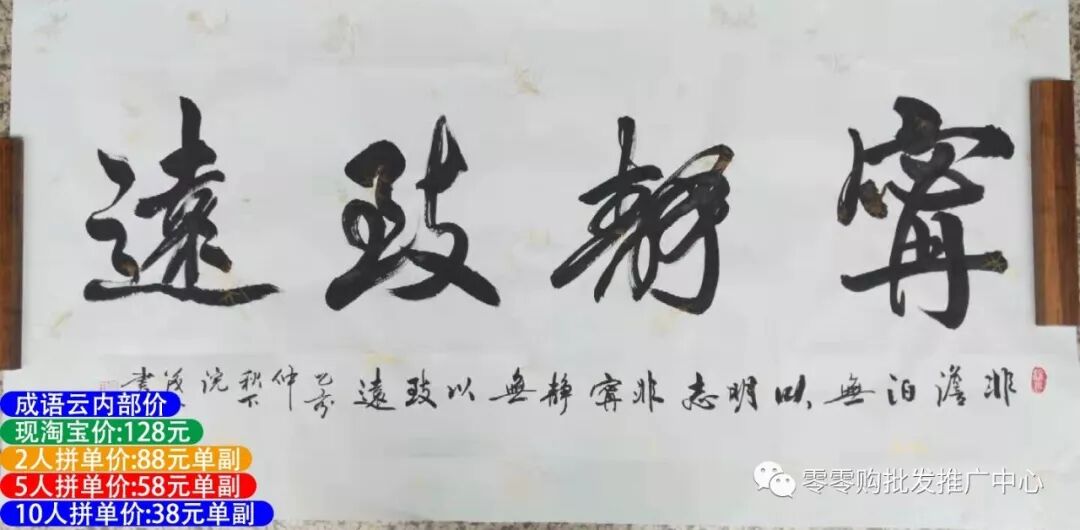 寧静致遠
非澹泊無以明志非寧静無以致遠
仲秋下浣
書
成语云内部价
现淘宝价:128元
2人拼单价:88元单副
5人拼单价:58元单副
10人拼单价:38元单副
零零购批发推广中心